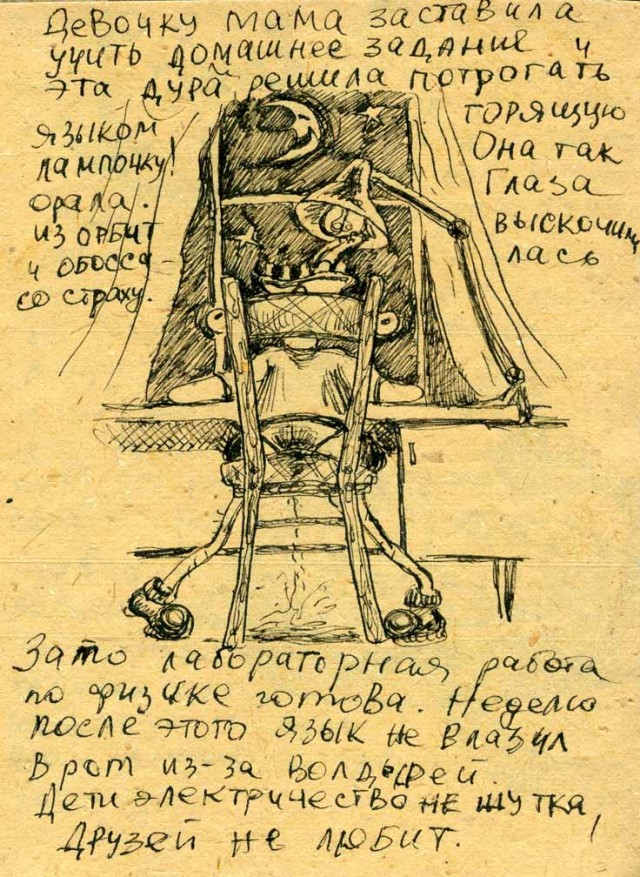 Девочку мама заставила
учить домашнее задание и
эта дура решила потрогать
горящую
языком
лампочку!
Она так
орала.
Глаза
выскочили
из орбит
и обосса-
лась
со страху.
Зато лабораторная работа
по физике готова. Неделю
после этого язык не влазил
в рот из-за волдырей.
Дети электричество не шутка,
друзей не любит.